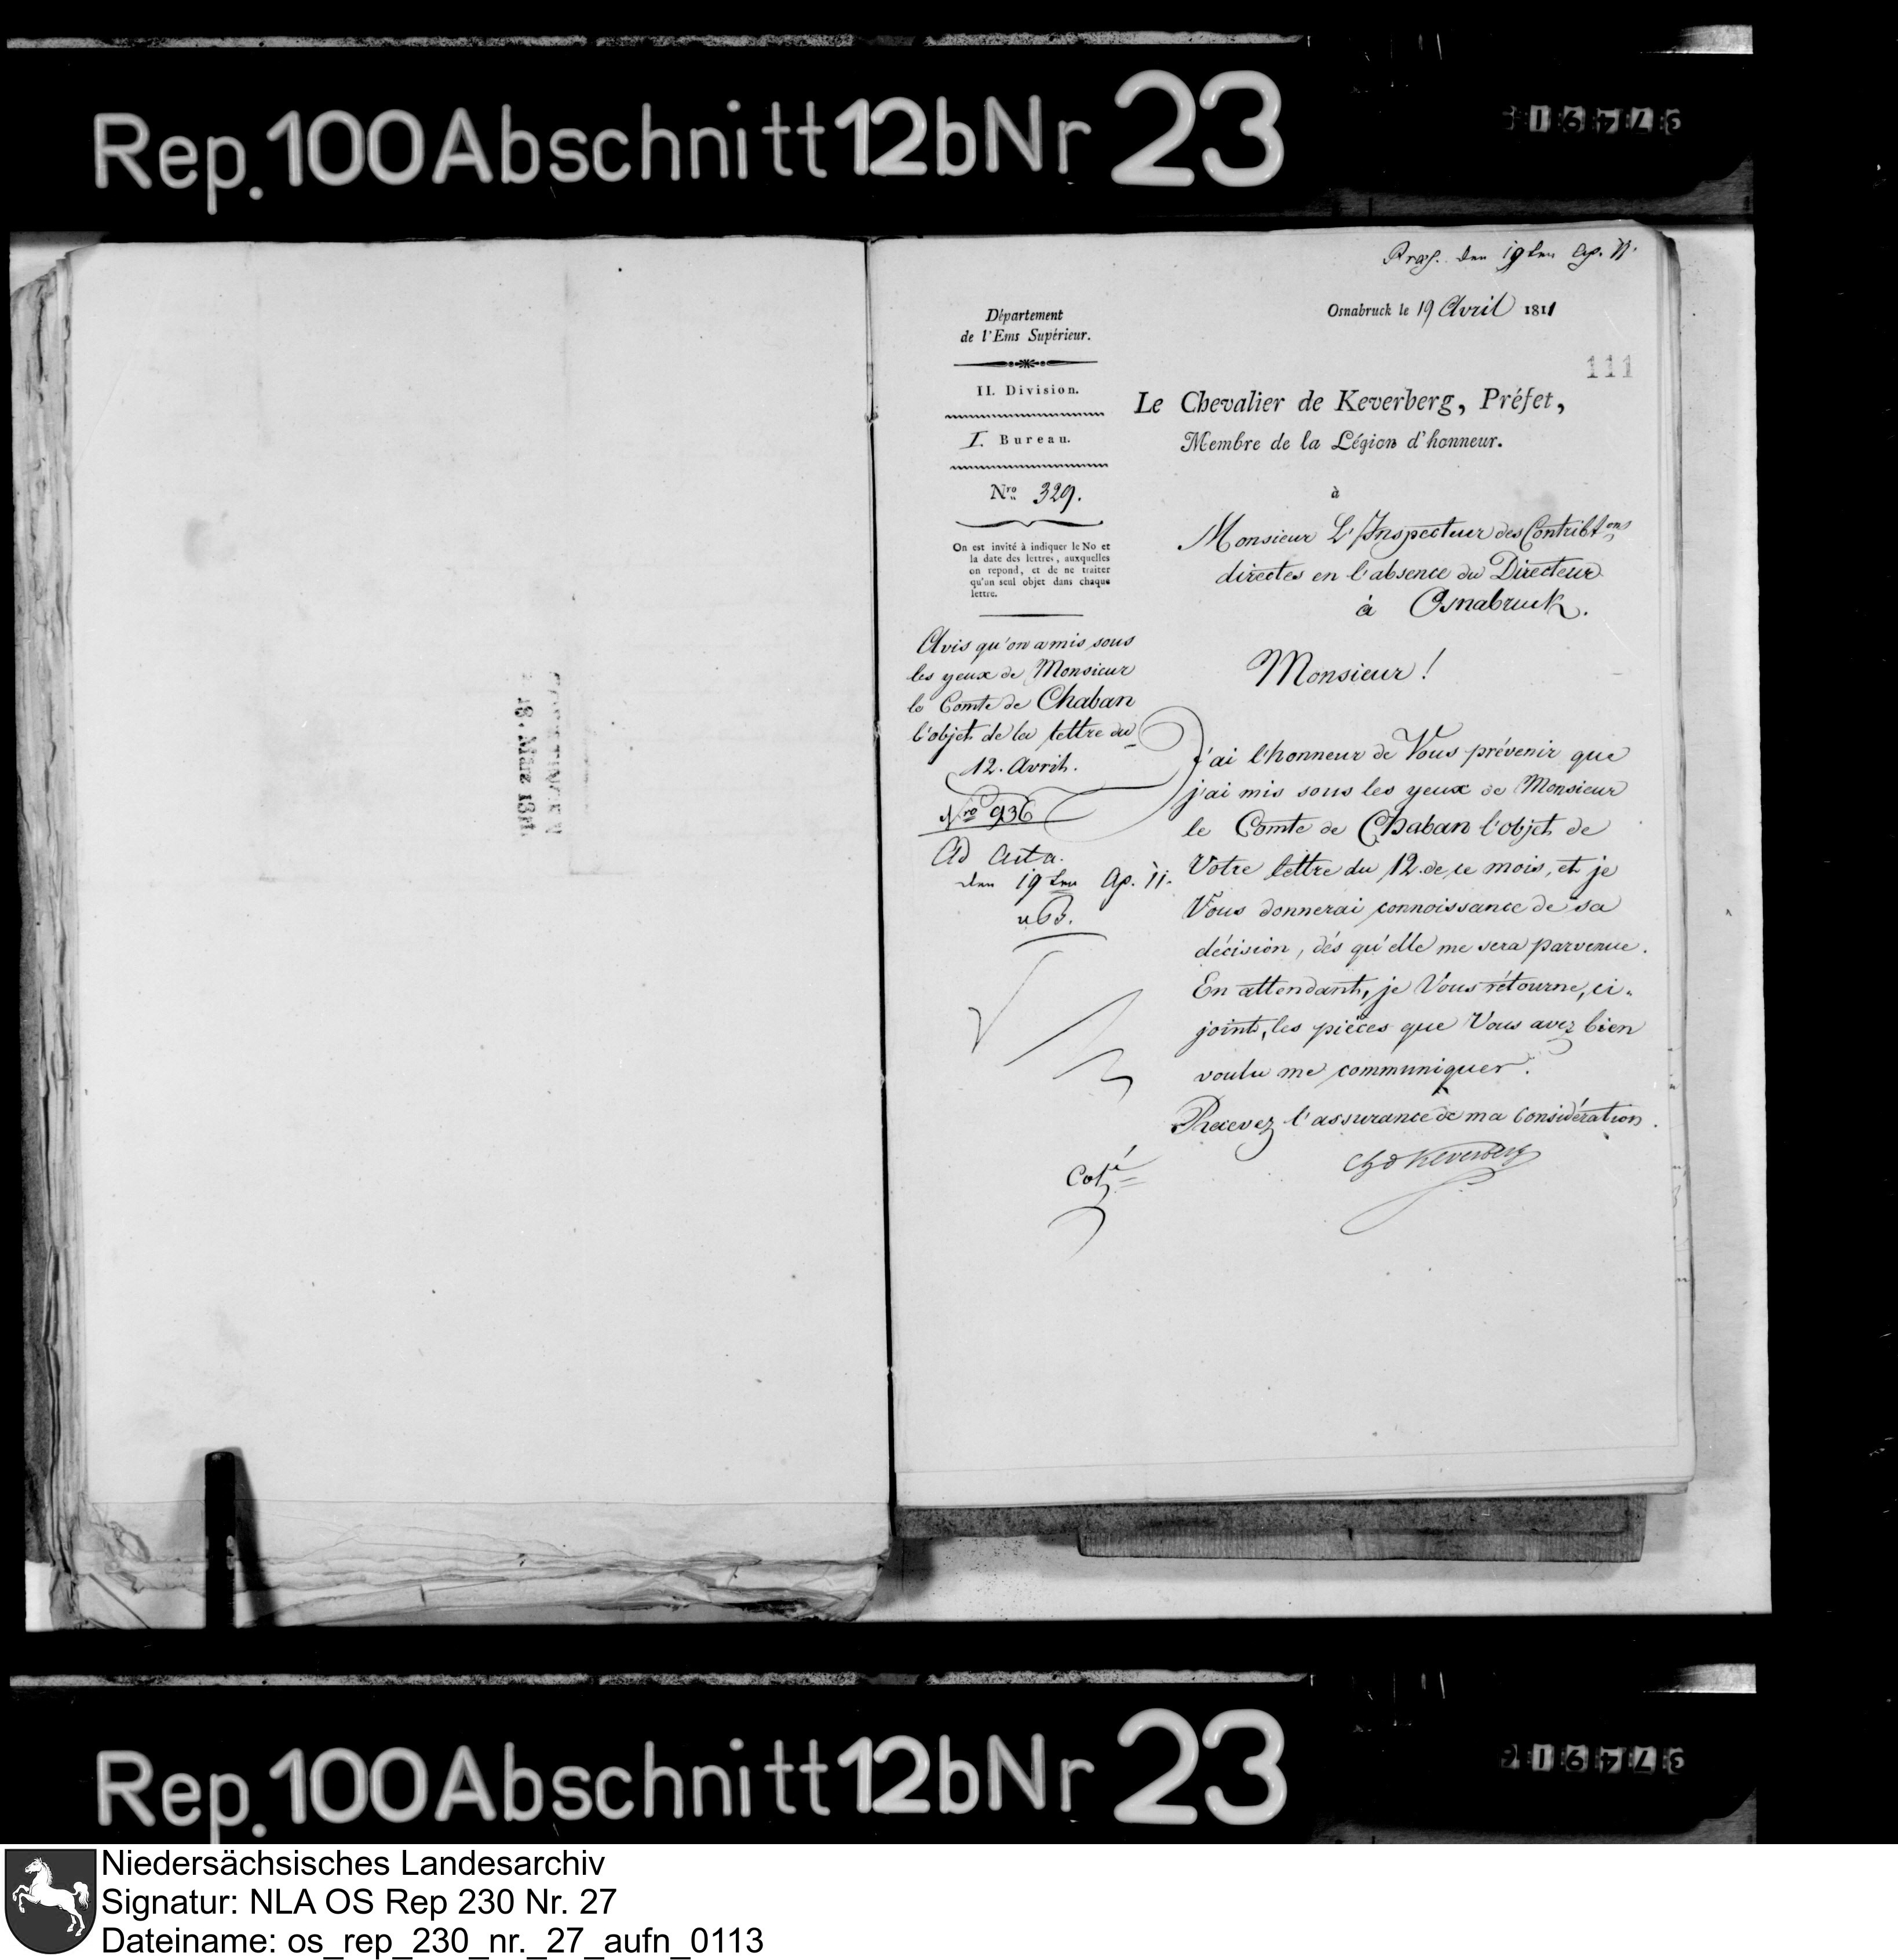 Rep. 100 Abschnitt 12b Nr 23
18. März 1811.
den 19ten Ap. 11.
Osnabruck le 19 Avril 1811
111
Département
de l'Ems Supérieur.
II. Division.
I. Bureau.
Nro 329.
On est invité à indiquer le No et
la date des lettres, auxquelles
on repond, et de ne traiter
qu'un seul objet dans chaque
lettre.
Avis qu'on a mis sous
les yeux de Monsieur
le Comte de Chaban
l'objet de la lettre du
12. Avril.
Nro 936
Ad Acta.
den 19ten Ap. 11.
Le Chevalier de Keverberg, Préfet,
Membre de la Légion d'honneur.
à
Monsieur L'Inspecteur des Contribtons
directes en l'absence du Directeur
à Osnabruck.
Monsieur !
J'ai l'honneur de Vous prévenir que
j'ai mis sous les yeux de Monsieur
le Comte de Chaban l'objet de
Votre lettre du 12. de ce mois, et je
Vous donnerai connoissance de sa
décision, dés qu'elle me sera parvenue.
En attendant, je Vous rétourne, ci-
joint, les pièces que Vous avez bien
voulu me communiquer.
Recevez l'assurance de ma Considération.
Ch. d Keverberg
Coté
Rep. 100 Abschnitt 12b Nr 23
Niedersächsisches Landesarchiv
Signatur: NLA OS Rep 230 Nr. 27
Dateiname: os_rep_230_nr._27_aufn_0113